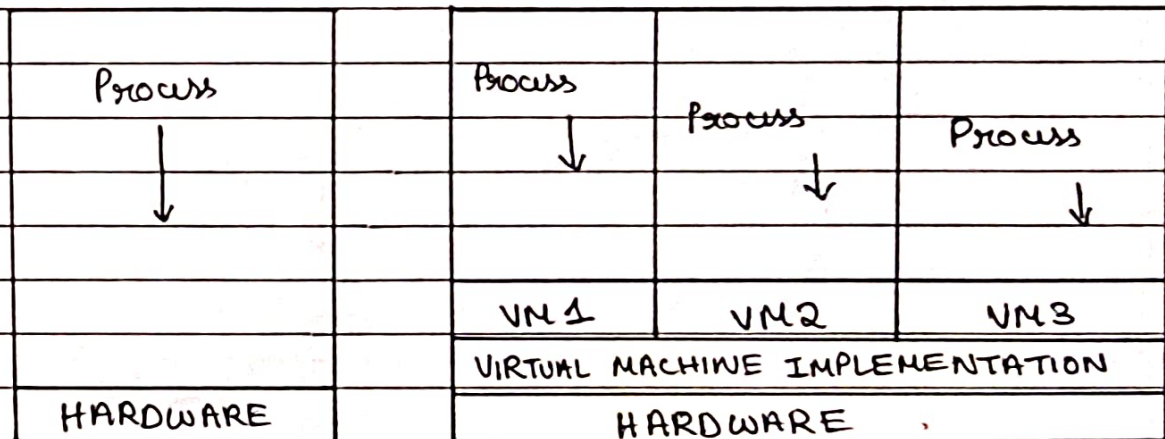 Process
HARDWARE
Process
Process
Process
VM1
VM2
VM3
VIRTUAL MACHINE IMPLEMENTATION
HARDWARE